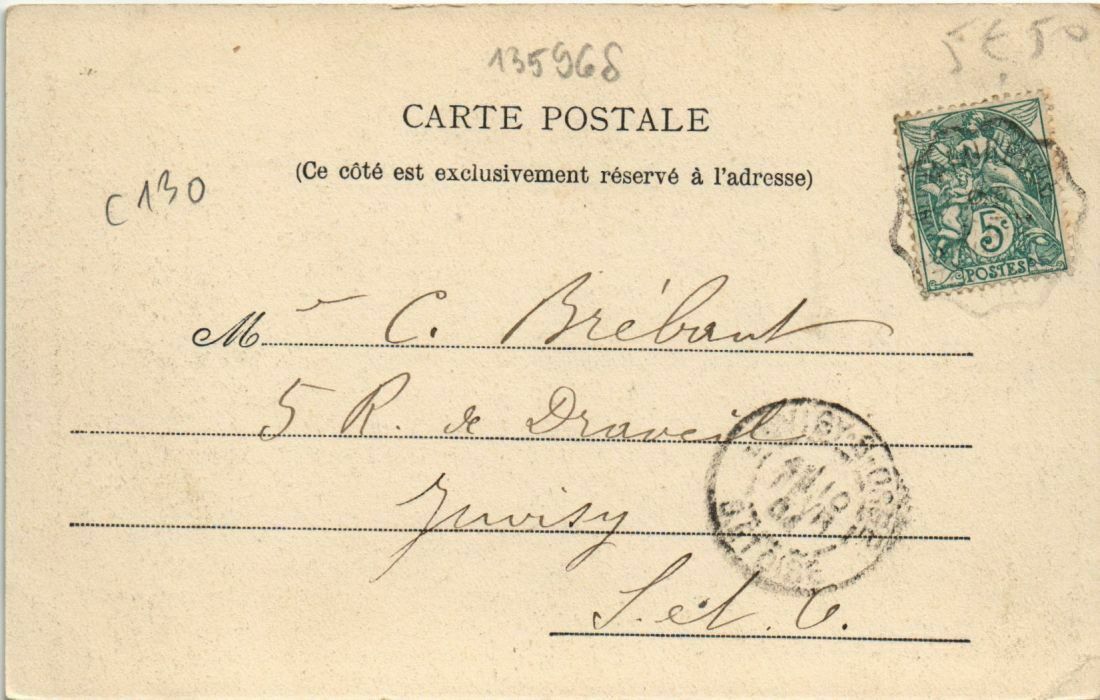 135968
5 € 50
CARTE POSTALE
(Ce côté est exclusivement réservé à l'adresse)
C130
5c
POSTES
M C. Brébant
5 R. de Draveil
Juvisy
S. et. O.